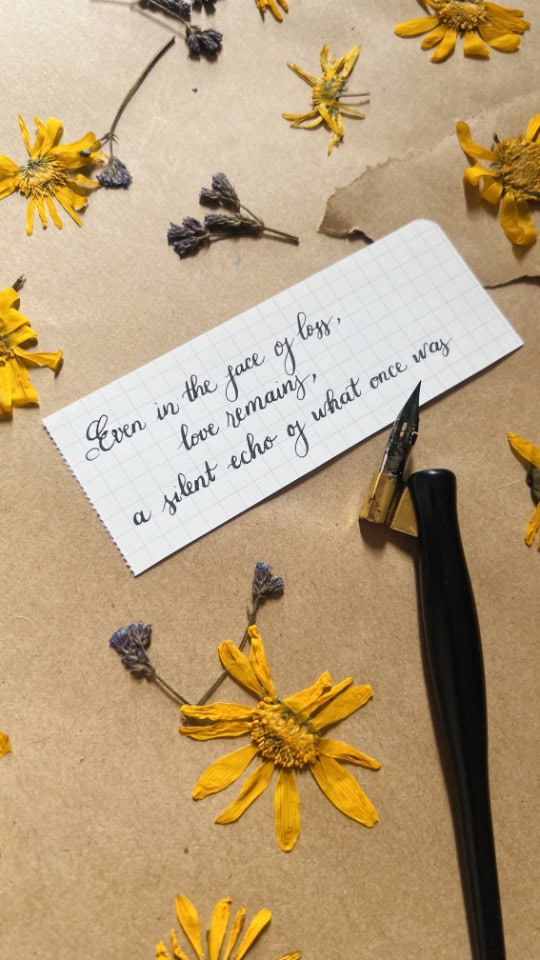 Even in the face of loss,
love remains,
a silent echo of what once was